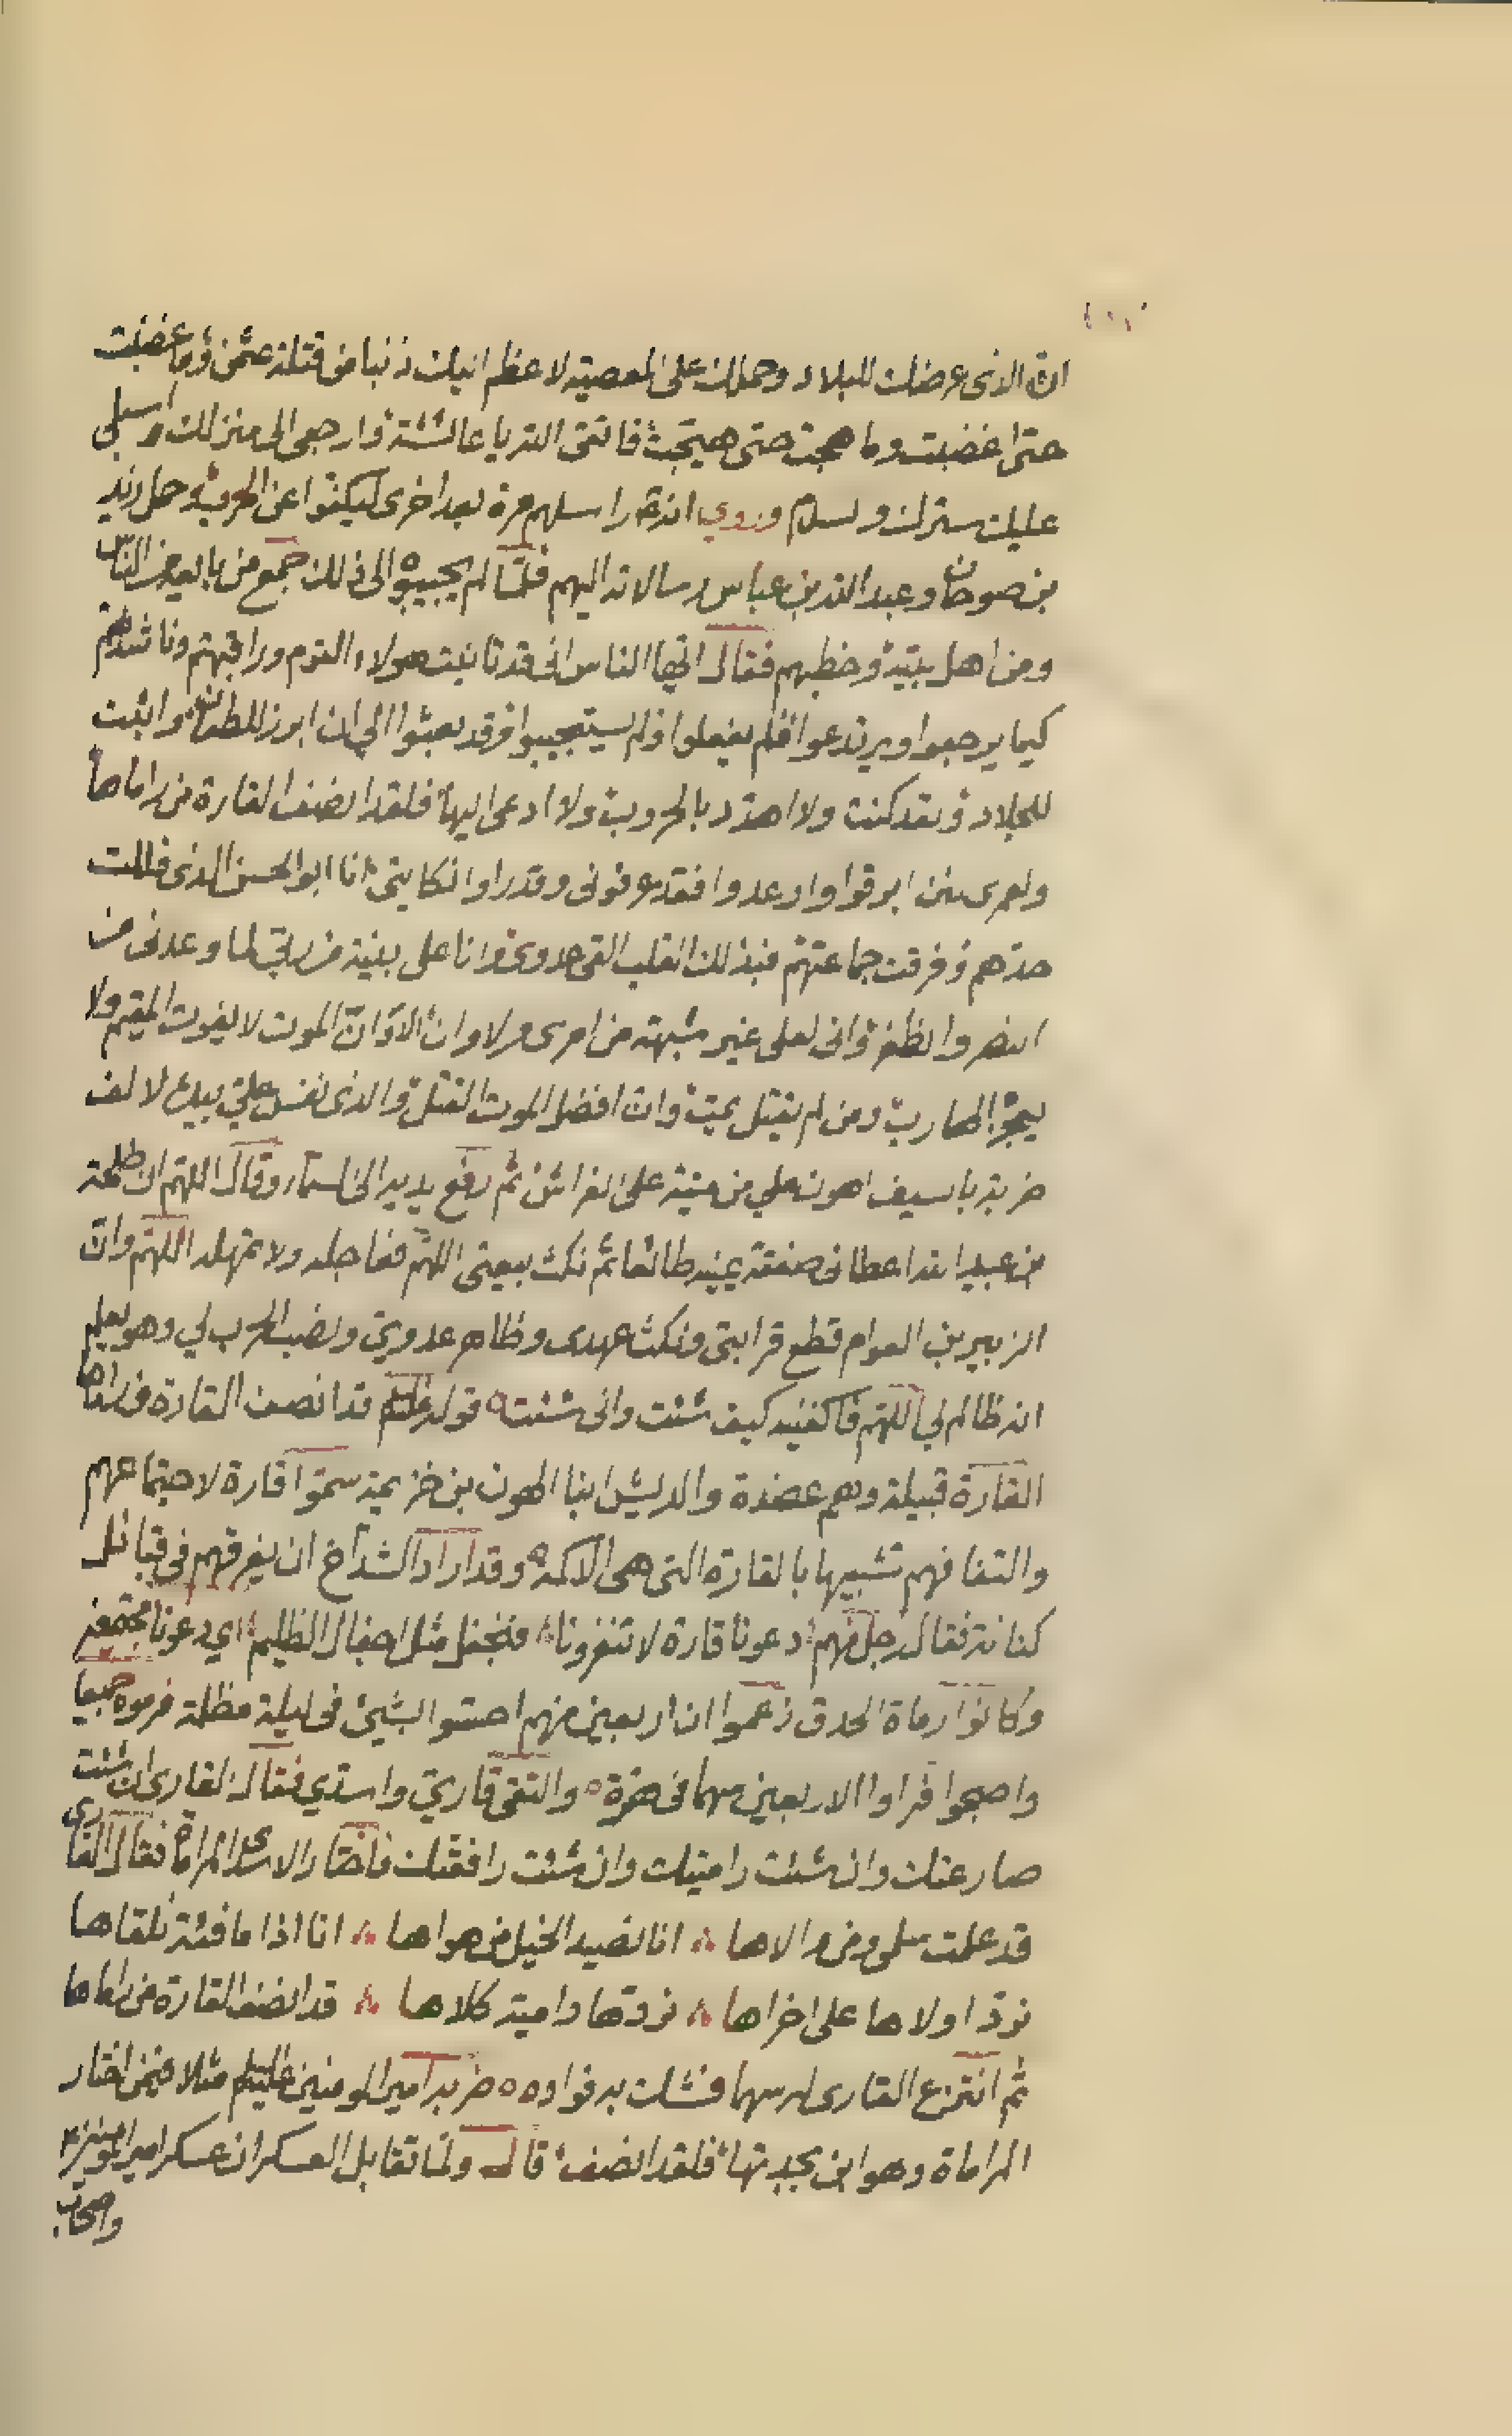 ان الذى عرضك للبلاد وحملك على المعصية لاعظم اليك ذنبا من قتلة عثمن وما غضبت
حتى اغضبت وما هجت حتى هيجت فاتقى الله يا عائشة وارجعى الى منزلك واسبلى
عليك سترك والسلم وروي انه راسلهم مرة بعد اخرى ليكفوا عن الحرب وحمل زيد
بن صوحان وعبد الله بن عباس رسالاته اليهم فلما لم يجيبوه الى ذلك جمع من بايعه من الناس
ومن اهل بيته وخطبهم فقال ايها الناس انى قد تانيت هولاء القوم وراقبتهم وناشدتهم
كيما يرجعوا ويرتدعوا فلم يفعلوا ولم يستجيبوا وقد بعثوا الي ان ابرز للطعان واثبت
للجلاد وقد كنت ولا اهدد بالحروب ولا ادعى اليها فلقد انصف القارة من راماها
ولعمرى لئن ابرقوا وارعدوا فقد عرفونى وقد راوا نكايتى انا ابو الحسن الذى فللت
حدهم وفرقت جماعتهم فبذلك القلب القى عدوى وانا على بينة من ربي لما وعدنى من
النصر والظفر وانى لعلى غير شبهة من امرى الا وان الموت لا يفوته المقيم ولا
يعجزه الهارب ومن لم يقتل يمت وان افضل الموت القتل والذى نفس علي بيده لالف
ضربة بالسيف اهون علي من ميتة على الفراش ثم رفع يديه الى السماء وقال اللهم ان طلحة
بن عبيد الله اعطانى صفقة يمينه طائعا ثم نكث بيعتى اللهم فعاجله ولا تمهله اللهم وان
الزبير بن العوام قطع قرابتى ونكث عهدى وظاهر عدوي ونصب الحرب لي وهو يعلم
انه ظالم لي اللهم فاكفنيه كيف شئت وانى شئت قوله عليلم قد انصف القارة من راماها
القارة قبيلة وهم عضدة والديش ابنا الهون بن خزيمة سموا قارة لاجتماعهم
والتفافهم تشبيها بالقارة التى هى الاكمة وقد اراد الشداخ ان يفرقهم فى قبائل
كنانة فقال رجل منهم دعونا قارة لا تنفرونا فنجفل مثل اجفال الظليم اي دعونا مجتمعين
وكانوا رماة الحدق زعموا ان اربعين منهم احسوا الشيئ فى ليلة مظلمة فرموه جميعا
واصبحوا فراوا الاربعين سهما فى هرة والتقى قاري واسدي فقال القارى ان شئت
صارعتك وان شئت راميتك وان شئت رافقتك فاختار الاسدى المراماة فقال القارى
قد علمت سلمى ومن والاها ؞ انا نصيد الخيل من هواها ؞ انا اذا ما فئة نلقاها
نرد اولاها على اخراها ؞ نردها دامية كلاها ؞ قد انصف القارة من راماها
ثم انتزع القارى له سهما فشك به فواده ضربه امير المومنين عليلم مثلا فيمن اختار
المراماة وهو ابن بجدتها فلقد انصف قال ولما تقابل العسكران عسكر امير المومنين
واصحاب